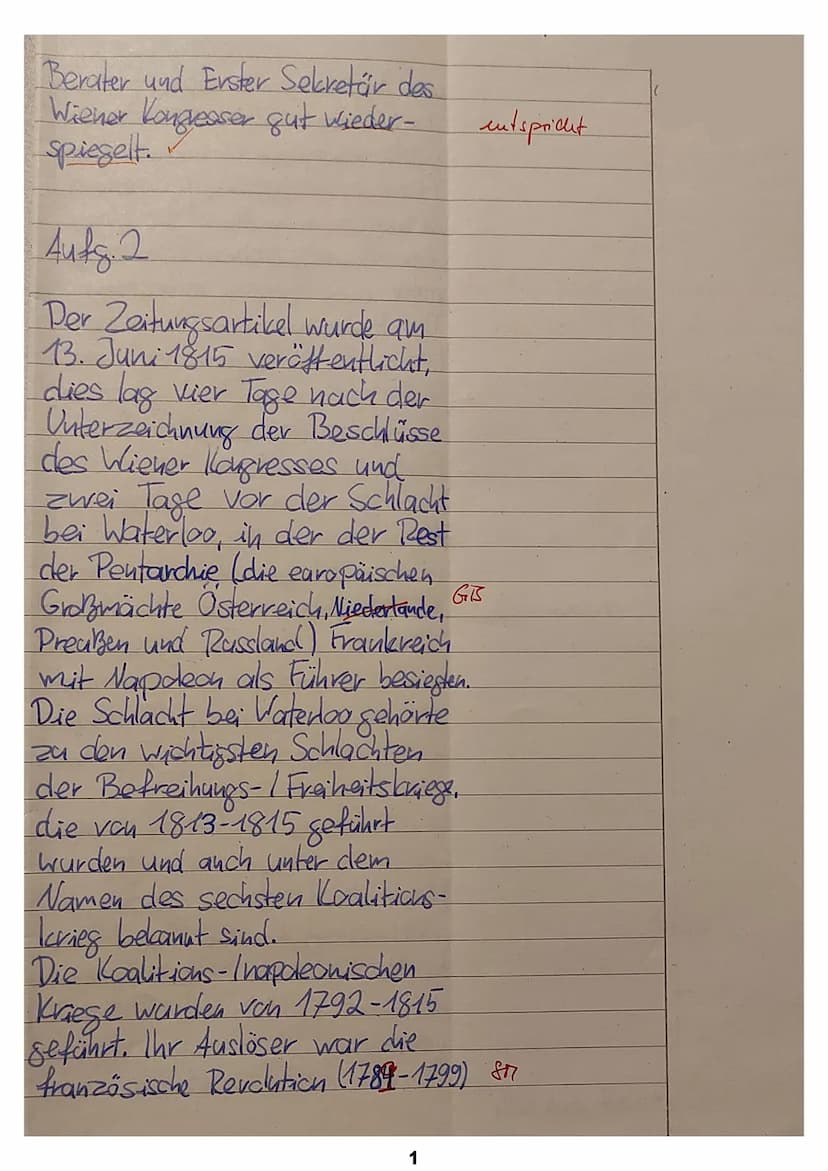 Berater und Erster Sekretär des
Wiener Kongresser gut wieder-
entspricht
spiegelt. ✓
Aufg. 2
Der Zeitungsartikel wurde am
13. Juni 1815 veröffentlicht,
dies lag vier Tage nach der
Unterzeichnung der Beschlüsse
des Wiener Kongresses und
zwei Tage vor der Schlacht
bei Waterloo, in der der Rest
der Pentarchie (die europäischen
Großmächte Österreich, Niederlande, GB
Preußen und Russland) Frankreich
mit Napoleon als Führer besiegten.
Die Schlacht bei Waterloo gehörte
zu den wichtigsten Schlachten
der Befreihungs-/Freiheitskriege,
die von 1813-1815 geführt
wurden und auch unter dem
Namen des sechsten Koalitions-
krieg bekannt sind.
Die Koalitions-/napoleonischen
Kriege wurden von 1792-1815
geführt. Ihr Auslöser war die
französische Revolution (1789-1799)
1